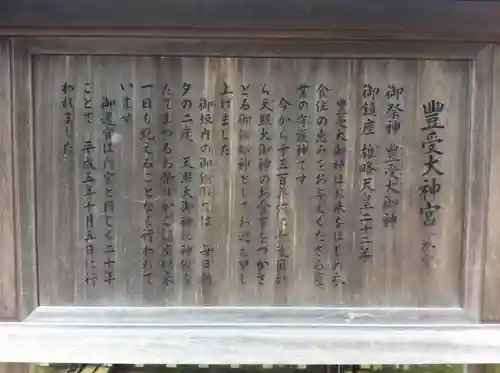 豊受大神宮（外宮）
御祭神 豊受大御神
御鎮座 雄略天皇二十二年
豊受大御神はお米をはじめ衣
食住の恵みをお与えくださる産
業の守護神です
今から千五百年前に丹波国か
ら天照大御神のお食事をつかさ
どる御饌都神としてお迎え申し
上げました
御垣内の御饌殿では 毎日朝
夕の二度 天照大御神に神饌を
たてまつるお祭りがご鎮座以来
一日も絶えることなく行われて
います
御遷宮は内宮と同じく二十年
ごとで 平成五年十月五日に行
われました